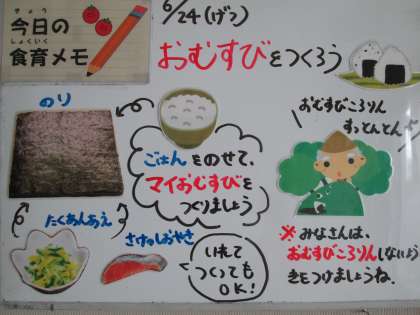 きょう
今日の
しょくいく
食育メモ
6/24(げつ)
おむすびをつくろう
のり
ごはんをのせて、
マイおむすびを
つくりましょう
たくあんあえ
さけのしおやき
いれて
つくっても
OK!
おむすびころりん
すっとんとん
※みなさんは、
おむすびころりんしないよう
きをつけましょうね.